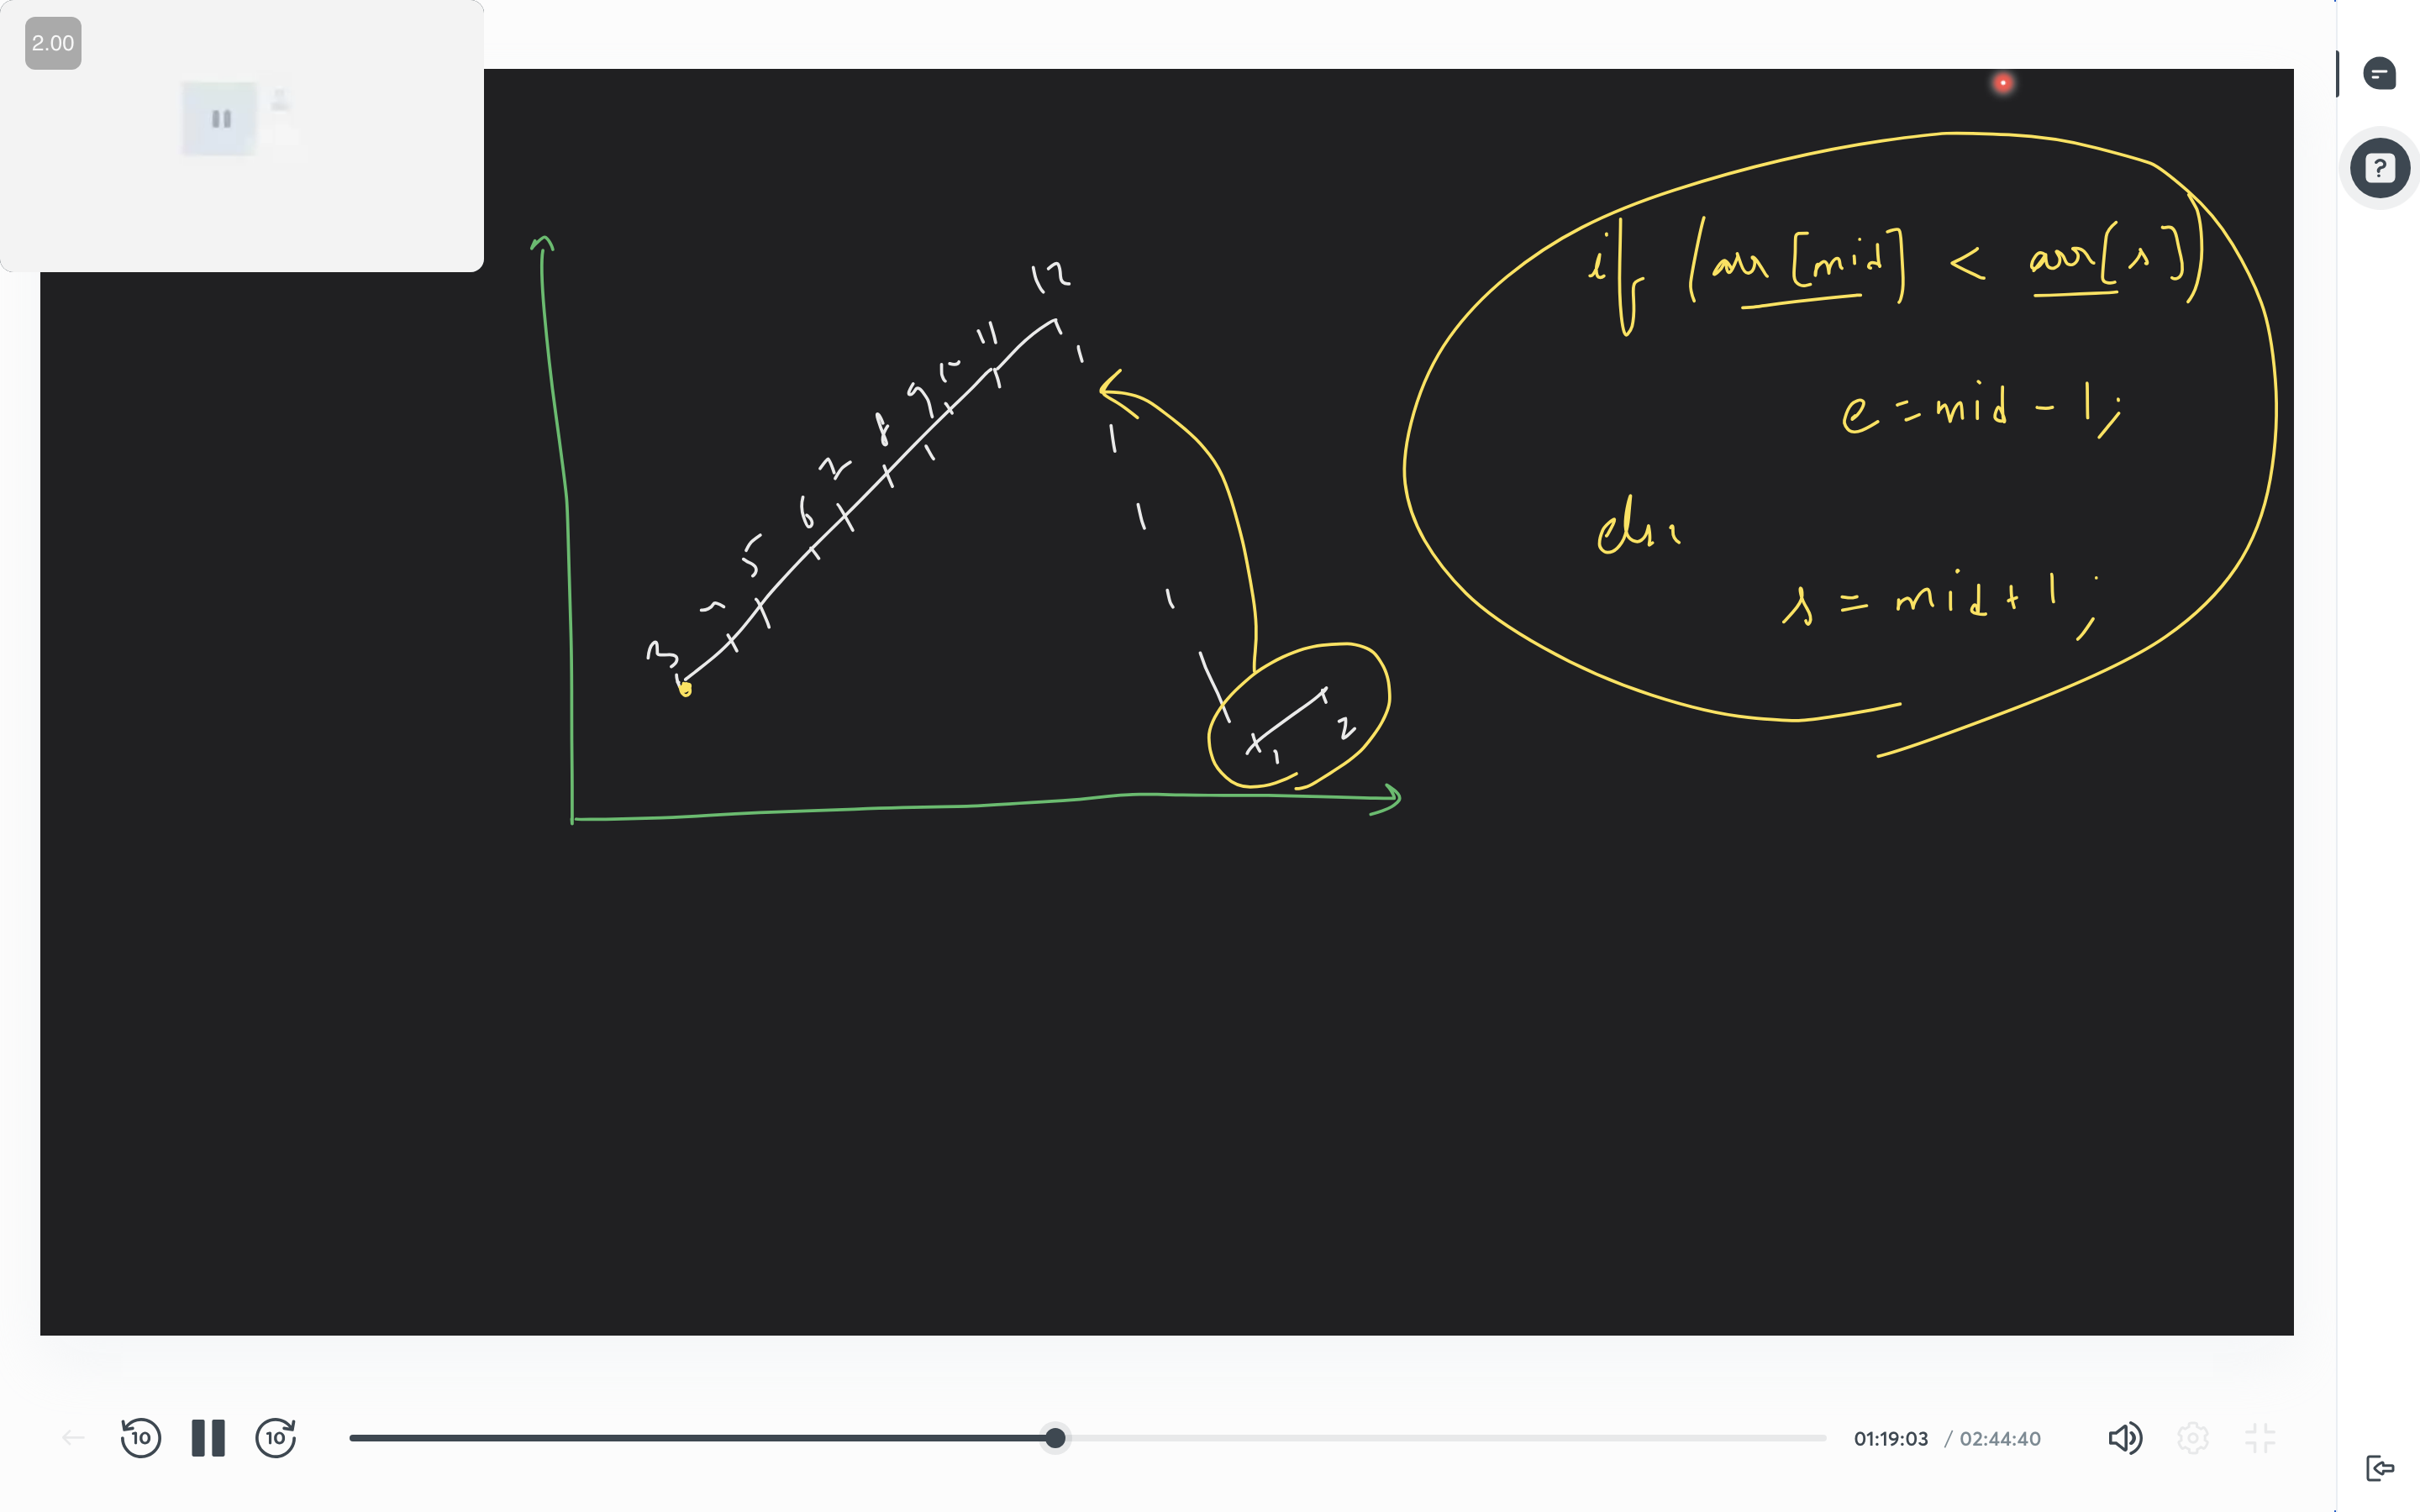 2.00
12
11
10
9
8
7
6
5
3
1
2
if (arr[mid] < arr[s])
e = mid - 1;
else
s = mid + 1;
10
10
01:19:03 / 02:44:40